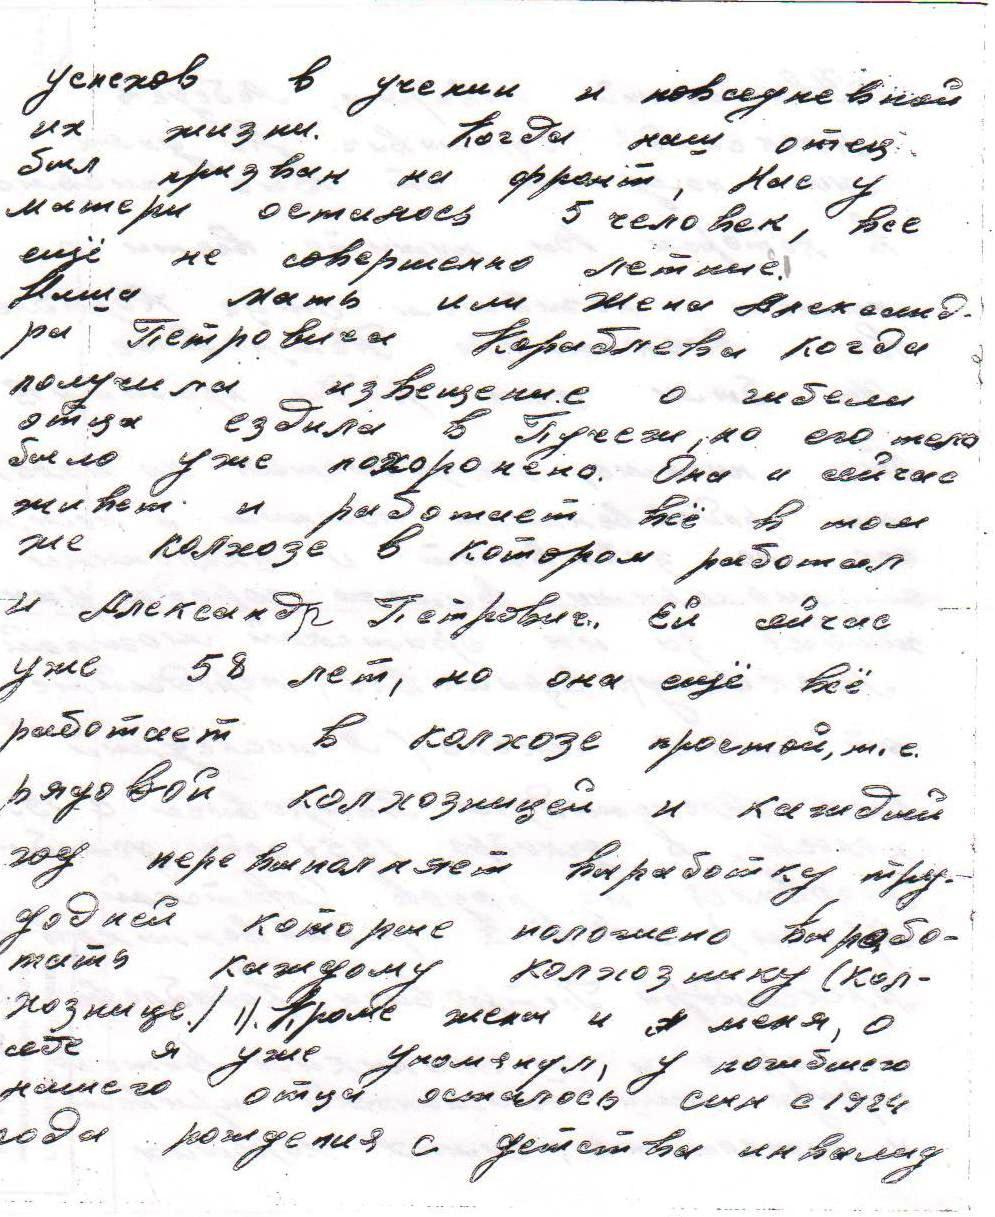 успехов в учении и повседневной
их жизни. Когда наш отец
был призван на фронт, нас у
матери осталось 5 человек, все
ещё не совершенно летние.
Наша мать или жена Александ-
ра Петровича Кораблева когда
получила извещение о гибели
отца ездила в Пучеж, но его тело
было уже похоронено. Она и сейчас
живет и работает всё в том
же колхозе в котором работал
и Александр Петрович. Ей сейчас
уже 58 лет, но она ещё всё
работает в колхозе простой, т.е.
рядовой колхозницей и каждый
год перевыполняет выработку тру-
додней которые положено вырабо-
тать каждому колхознику (кол-
хознице) 1). Кроме жены и меня, о
себе я уже упомянул, у погибшего
нашего отца осталось сын с 1924
года рождения с детства инвалид